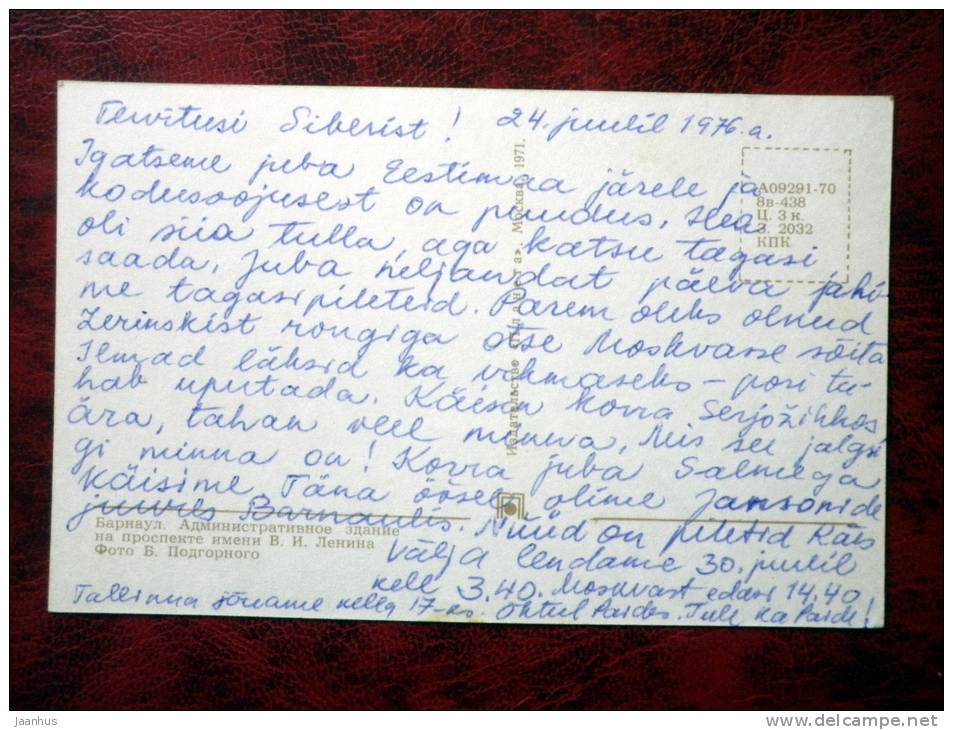 Tervitusi Siberist! 24. juulil 1976.a.
Igatseme juba Eestimaa järele ja
kodusoojusest on puudus. Hea
oli siia tulla, aga katsu tagasi
saada. Juba neljandat päeva jahi-
me tagasipileteid. Parem oleks olnud
rongiga otse Moskvasse sõita
Ilmad läksid ka vihmaseks – pori tu-
hab uputada. Käisin korra Serjožihhos
ära, tahan veel minna. Mis see jalgsi
gi minna on! Korra juba Salmega
käisime. Täna öösel olime Jansonide
juures Barnaulis. Nüüd on piletid käes
Välja lendame 30. juulil
kell 3.40. Moskvast edasi 14.40
Tallinna jõuame kella 17-ks. Õhtul Paides. Tule ka Paide!
А09291-70
8в-438
Ц. 3 к.
З. 2032
КПК
Издательство «Планета». Москва. 1971.
Барнаул. Административное здание
на проспекте имени В. И. Ленина
Фото Б. Подгорного
Jaanhus
www.delcampe.net